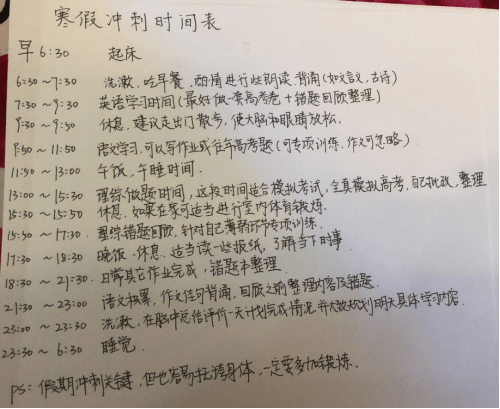 寒假冲刺时间表
早6:30 起床
6:30～7:30 洗漱,吃早餐,酌情进行些朗读背诵(如文言文,古诗)
7:30～9:30 英语学习时间(最好做一套高考卷+错题回顾整理)
9:30～9:50 休息,建议走出门散步,使大脑和眼睛放松.
9:50～11:50 语文学习,可以写作业或往年高考题(可专项训练,作文可忽略)
11:50～13:00 午饭,午睡时间.
13:00～15:30 理综做题时间,这段时间适合模拟考试,全真模拟高考,自己批改,整理
15:30～15:50 休息,如果在家可适当进行室内体育锻炼.
15:50～17:30. 理综错题回顾,针对自己薄弱环节专项训练.
17:30～18:30 晚饭.休息.适当读一些报纸,了解当下时事
18:30～21:30. 日常其它作业完成,错题本整理.
21:30～23:00 语文积累,作文佳句背诵,回顾之前整理内容及错题.
23:00～23:30 洗漱,在脑中总结评价一天计划完成情况,并大致规划明天具体学习内容.
23:30～6:30 睡觉.
PS:假期冲刺关键,但也容易拖垮身体,一定要多加锻炼.